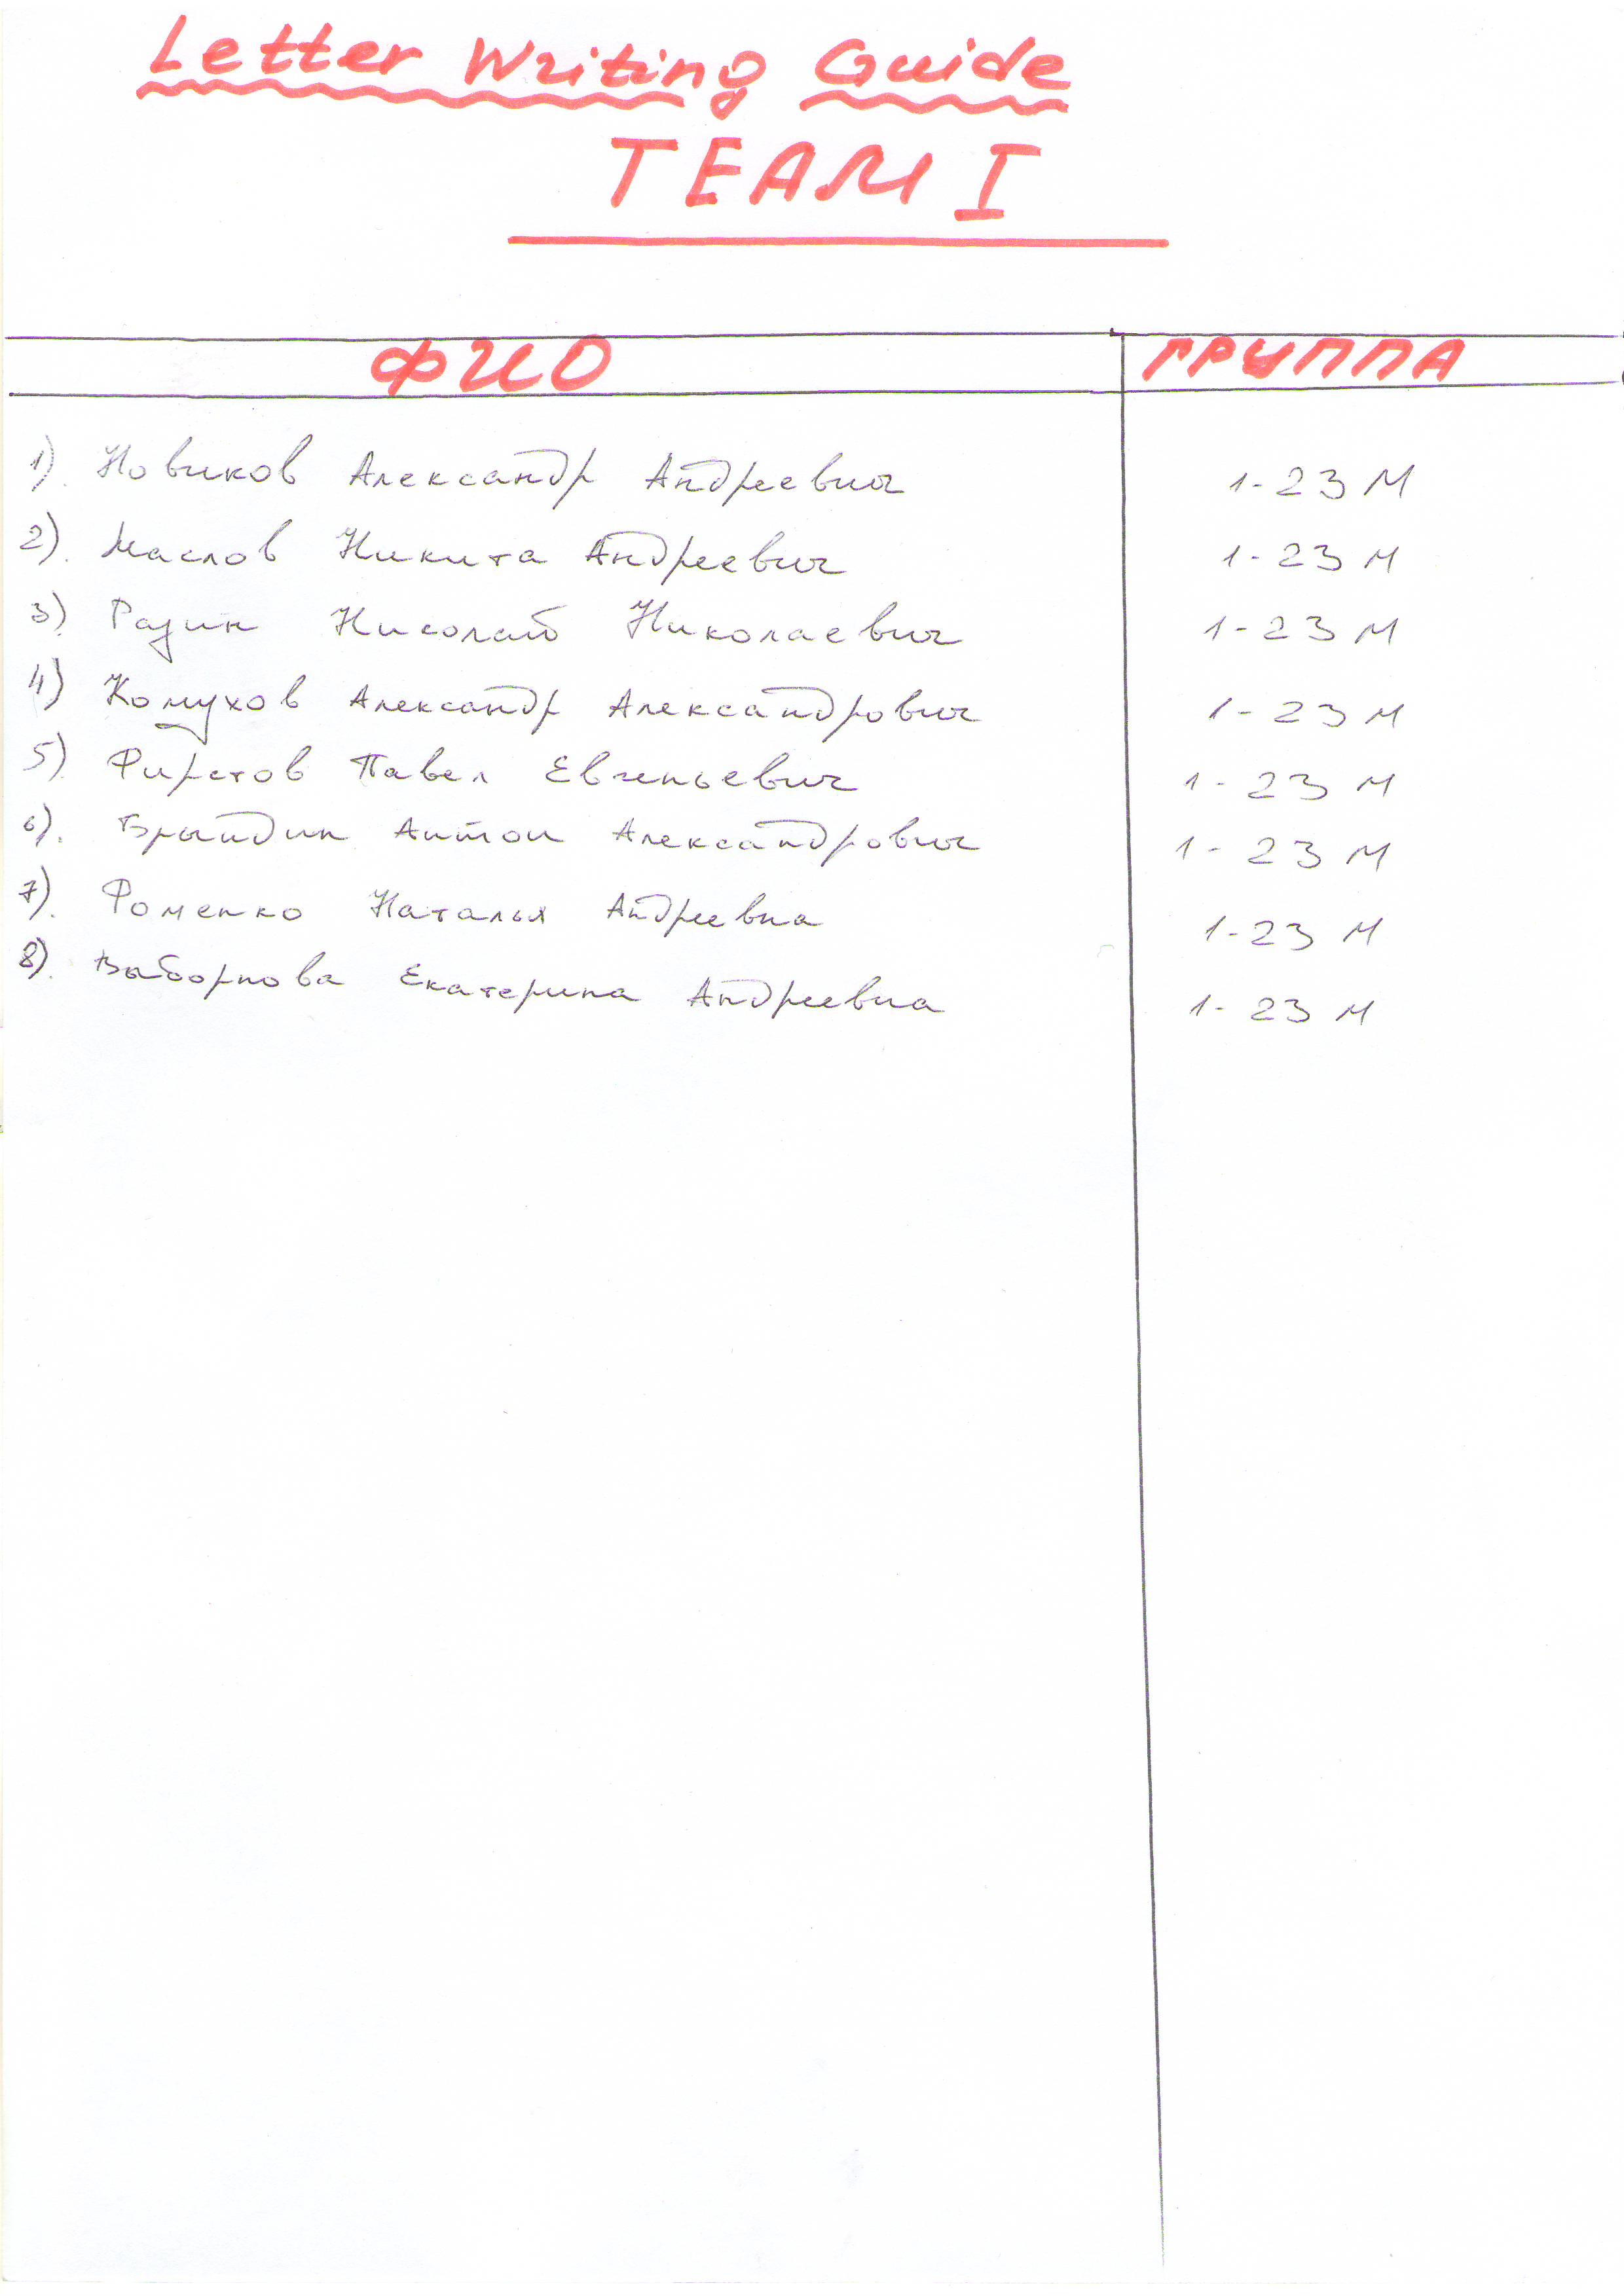 Letter Writing Guide
TEAM I
ФИО ГРУППА
1). Новиков Александр Андреевич 1-23 М
2). Маслов Никита Андреевич 1-23 М
3). Разин Николай Николаевич 1-23 М
4) Комухов Александр Александрович 1-23 М
5). Фирстов Павел Евгеньевич 1-23 М
6). Брындин Антон Александрович 1-23 М
7). Фоменко Наталья Андреевна 1-23 М
8). Выборнова Екатерина Андреевна 1-23 М